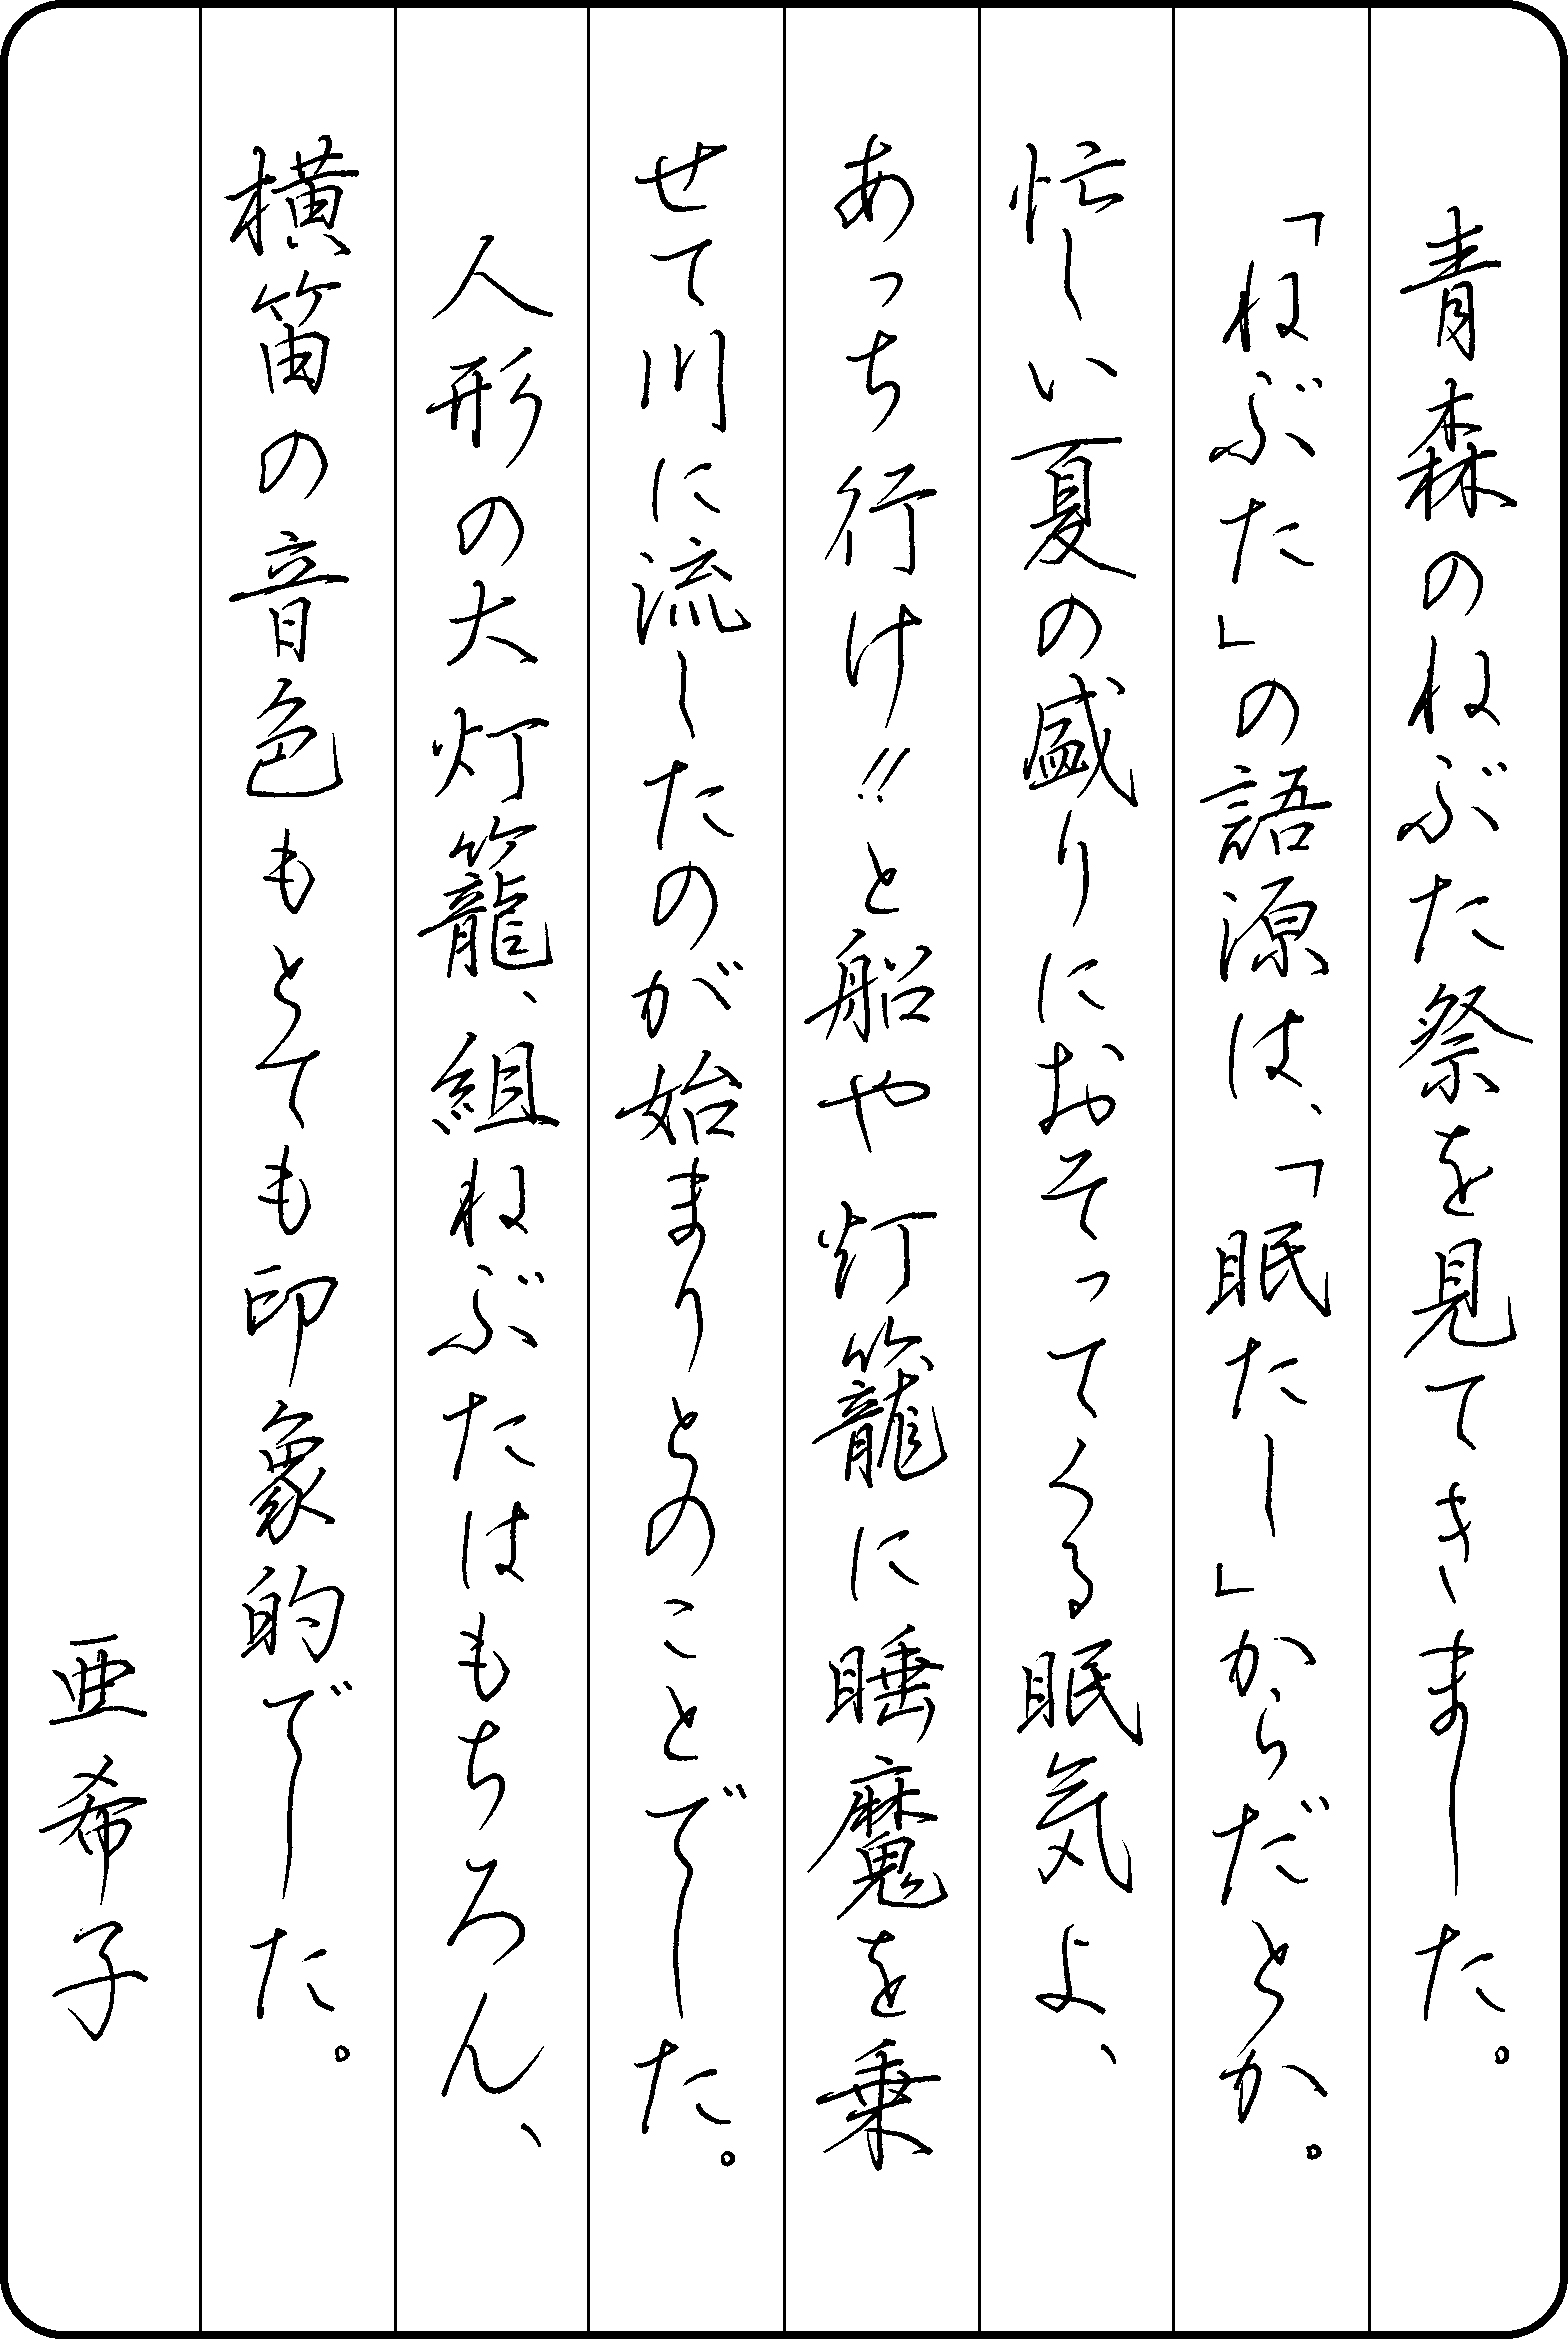 青森のねぶた祭を見てきました。
「ねぶた」の語源は、「眠たし」からだとか。
忙しい夏の盛りにおそってくる眠気よ、
あっち行け!!と船や灯籠に睡魔を乗
せて川に流したのが始まりとのことでした。
人形の大灯籠、組ねぶたはもちろん、
横笛の音色もとても印象的でした。
亜希子